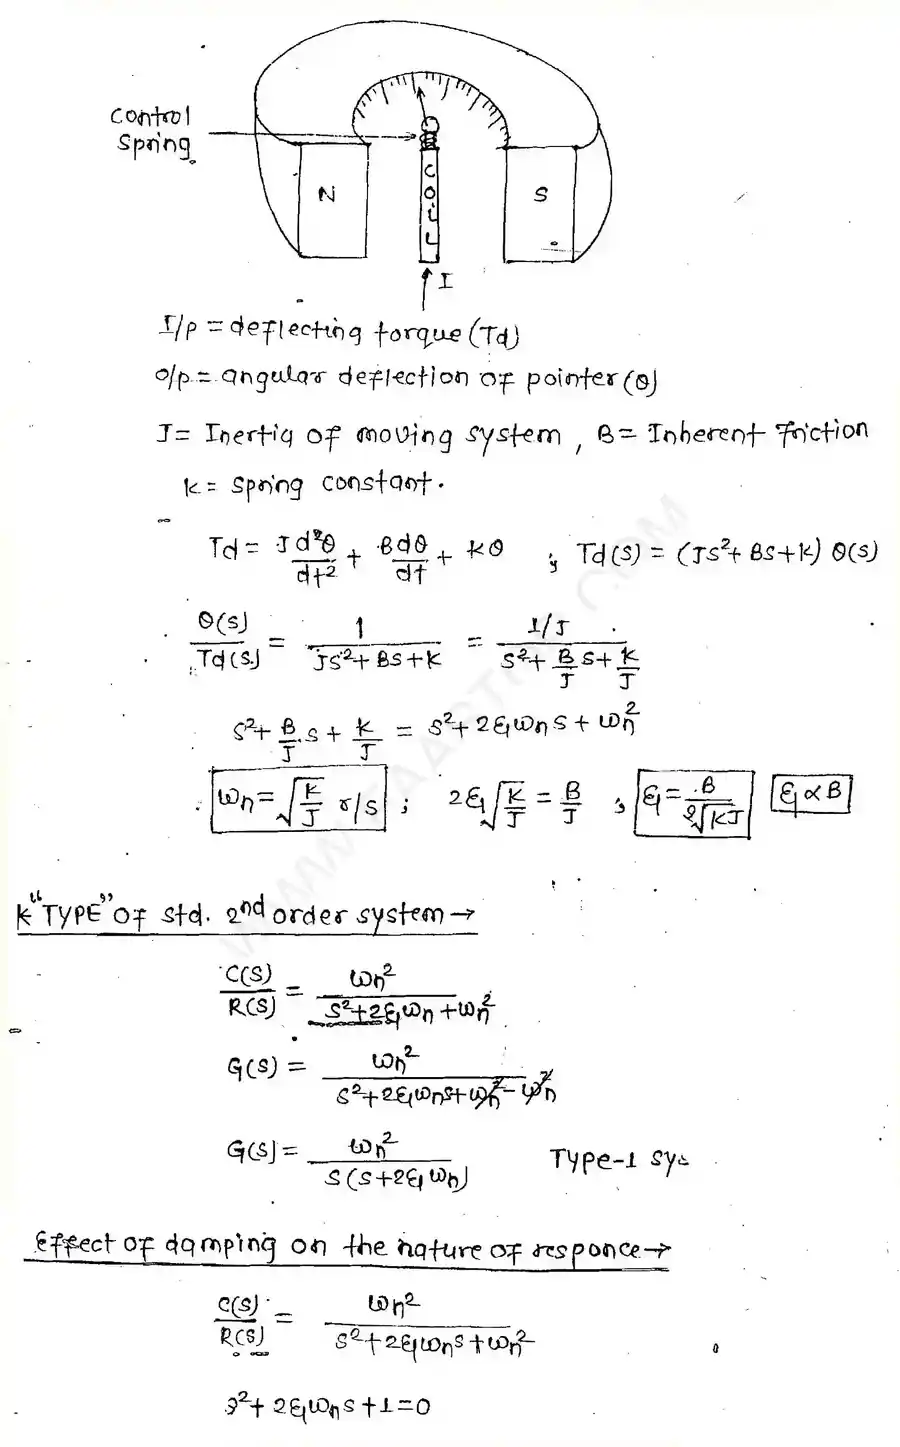 control
spring.
N
COIL
S
I
I/P = deflecting torque (Td)
O/p. = angular deflection of pointer (θ)
J = Inertia of moving system, B = Inherent friction
K = spring constant.
Td = J d²θ/dt² + B dθ/dt + Kθ ; Td(s) = (JS² + BS + K) θ(s)
θ(s)/Td(s) = 1/(JS² + BS + K) = (1/J)/(S² + B/J S + K/J)
S² + B/J.S + K/J = S² + 2ξωnS + ωn²
ωn = √(K/J) r/s ; 2ξ√(K/J) = B/J ; ξ = B/(2√KJ) ξ ∝ B
K "TYPE" of std. 2nd order system →
C(S)/R(S) = ωn²/(S² + 2ξωn + ωn²)
G(S) = ωn²/(S² + 2ξωnS + ωn² - ωn²)
G(S) = ωn²/(S(S + 2ξωn)) Type-1 sys
Effect of damping on the nature of responce →
C(S)/R(S) = ωn²/(S² + 2ξωnS + ωn²)
S² + 2ξωnS + 1 = 0